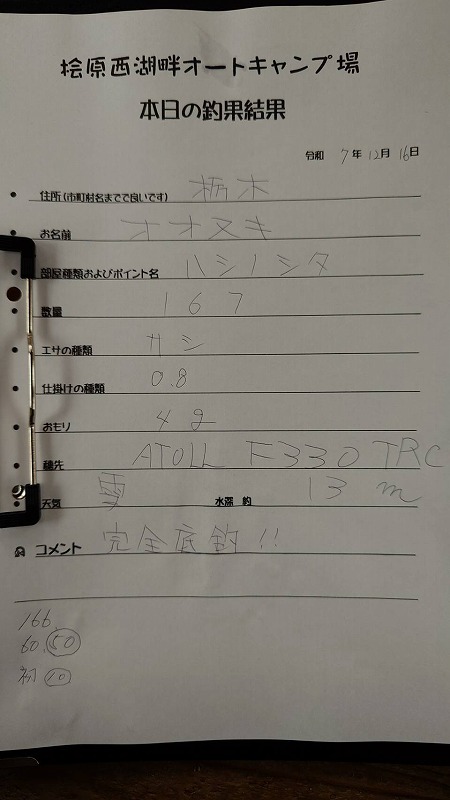 桧原西湖畔オートキャンプ場
本日の釣果結果
令和 7年 12月 16日
住所(市町村名までで良いです) 栃木
お名前 オオヌキ
部屋種類およびポイント名 ハシノシタ
数量 167
エサの種類 サシ
仕掛けの種類 0.8
おもり 4g
穂先 ATOLL F330 TRC
天気 雪 水深 約 13 m
コメント 完全底釣!!
166
60 50
初 10